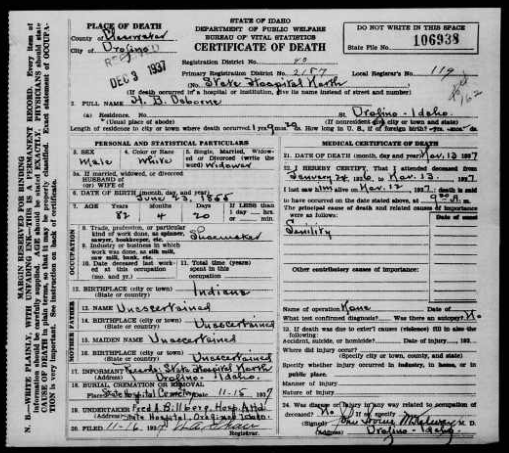 STATE OF IDAHO
DEPARTMENT OF PUBLIC WELFARE
BUREAU OF VITAL STATISTICS
CERTIFICATE OF DEATH
DO NOT WRITE IN THIS SPACE
State File No. 106938
PLACE OF DEATH
County of Clearwater
City of Orofino
DEC 3 1937
Registration District No.
Primary Registration District No. 2187 Local Registrar's No. 119
State Hospital North
(If death occurred in a hospital or institution, give its name instead of street and number)
2. FULL NAME H. B. Osborne
(a) Residence. No. Orofino - Idaho.
(Usual place of abode) (If nonresident give city or town and state)
Length of residence in city or town where death occurred 1 yrs 9 mos 20 ds. How long in U. S., if of foreign birth? yrs mos ds.
PERSONAL AND STATISTICAL PARTICULARS
3. SEX Male
4. Color or Race White
5. Single, Married, Widowed, or Divorced (write the word) Widower
5a. If married, widowed, or divorced
HUSBAND of
(or) WIFE of
6. DATE OF BIRTH (month, day, and year) June 23, 1855
7. AGE Years 82 Months 4 Days 20 If LESS than 1 day
OCCUPATION
8. Trade, profession, or particular kind of work done, as spinner, sawyer, bookkeeper, etc. Shoemaker
9. Industry or business in which work was done, as silk mill, saw mill, bank, etc.
10. Date deceased last worked at this occupation (mo. and yr.)
11. Total time (years) spent in this occupation
12. BIRTHPLACE (city or town) (State or country) Indiana
FATHER
13. NAME Unascertained
14. BIRTHPLACE (city or town) (State or country) Unascertained
MOTHER
15. MAIDEN NAME Unascertained
16. BIRTHPLACE (city or town) (State or country) Unascertained
17. INFORMANT Records, State Hospital North
(Address) Orofino - Idaho.
18. BURIAL, CREMATION OR REMOVAL
Place State Hospital Cemetery Date 11-15 1937
19. UNDERTAKER Fred A. Billberg, Hosp. Attd.
(Address) State Hospital, Orofino, Idaho.
20. FILED 11-16, 1937
Registrar.
MEDICAL CERTIFICATE OF DEATH
21. DATE OF DEATH (month, day, and year) Nov. 13 1937
22. I HEREBY CERTIFY, That I attended deceased from January 24 1936 to Nov. 13, 1937
I last saw him alive on Nov. 12 1937, death is said to have occurred on the date stated above, at 9
The principal cause of death and related causes of importance were as follows:
Senility
Other contributory causes of importance:
Name of operation None
What test confirmed diagnosis? Was there an autopsy? No
23. If death was due to external causes (violence) fill in also the following:
Accident, suicide, or homicide? Date of injury 193
Where did injury occur?
(Specify city or town, county, and state)
Specify whether injury occurred in industry, in home, or in public place.
Manner of injury
Nature of injury
24. Was disease or injury in any way related to occupation of deceased? No
If so, specify
(Signed) M. D.
(Address) Orofino - Idaho
MARGIN RESERVED FOR BINDING
N. B.—WRITE PLAINLY, WITH UNFADING INK—THIS IS A PERMANENT RECORD. Every item of information should be carefully supplied. AGE should be stated EXACTLY. PHYSICIANS should state CAUSE OF DEATH in plain terms, so that it may be properly classified. Exact statement of OCCUPATION is very important. See instruction on back of certificate.